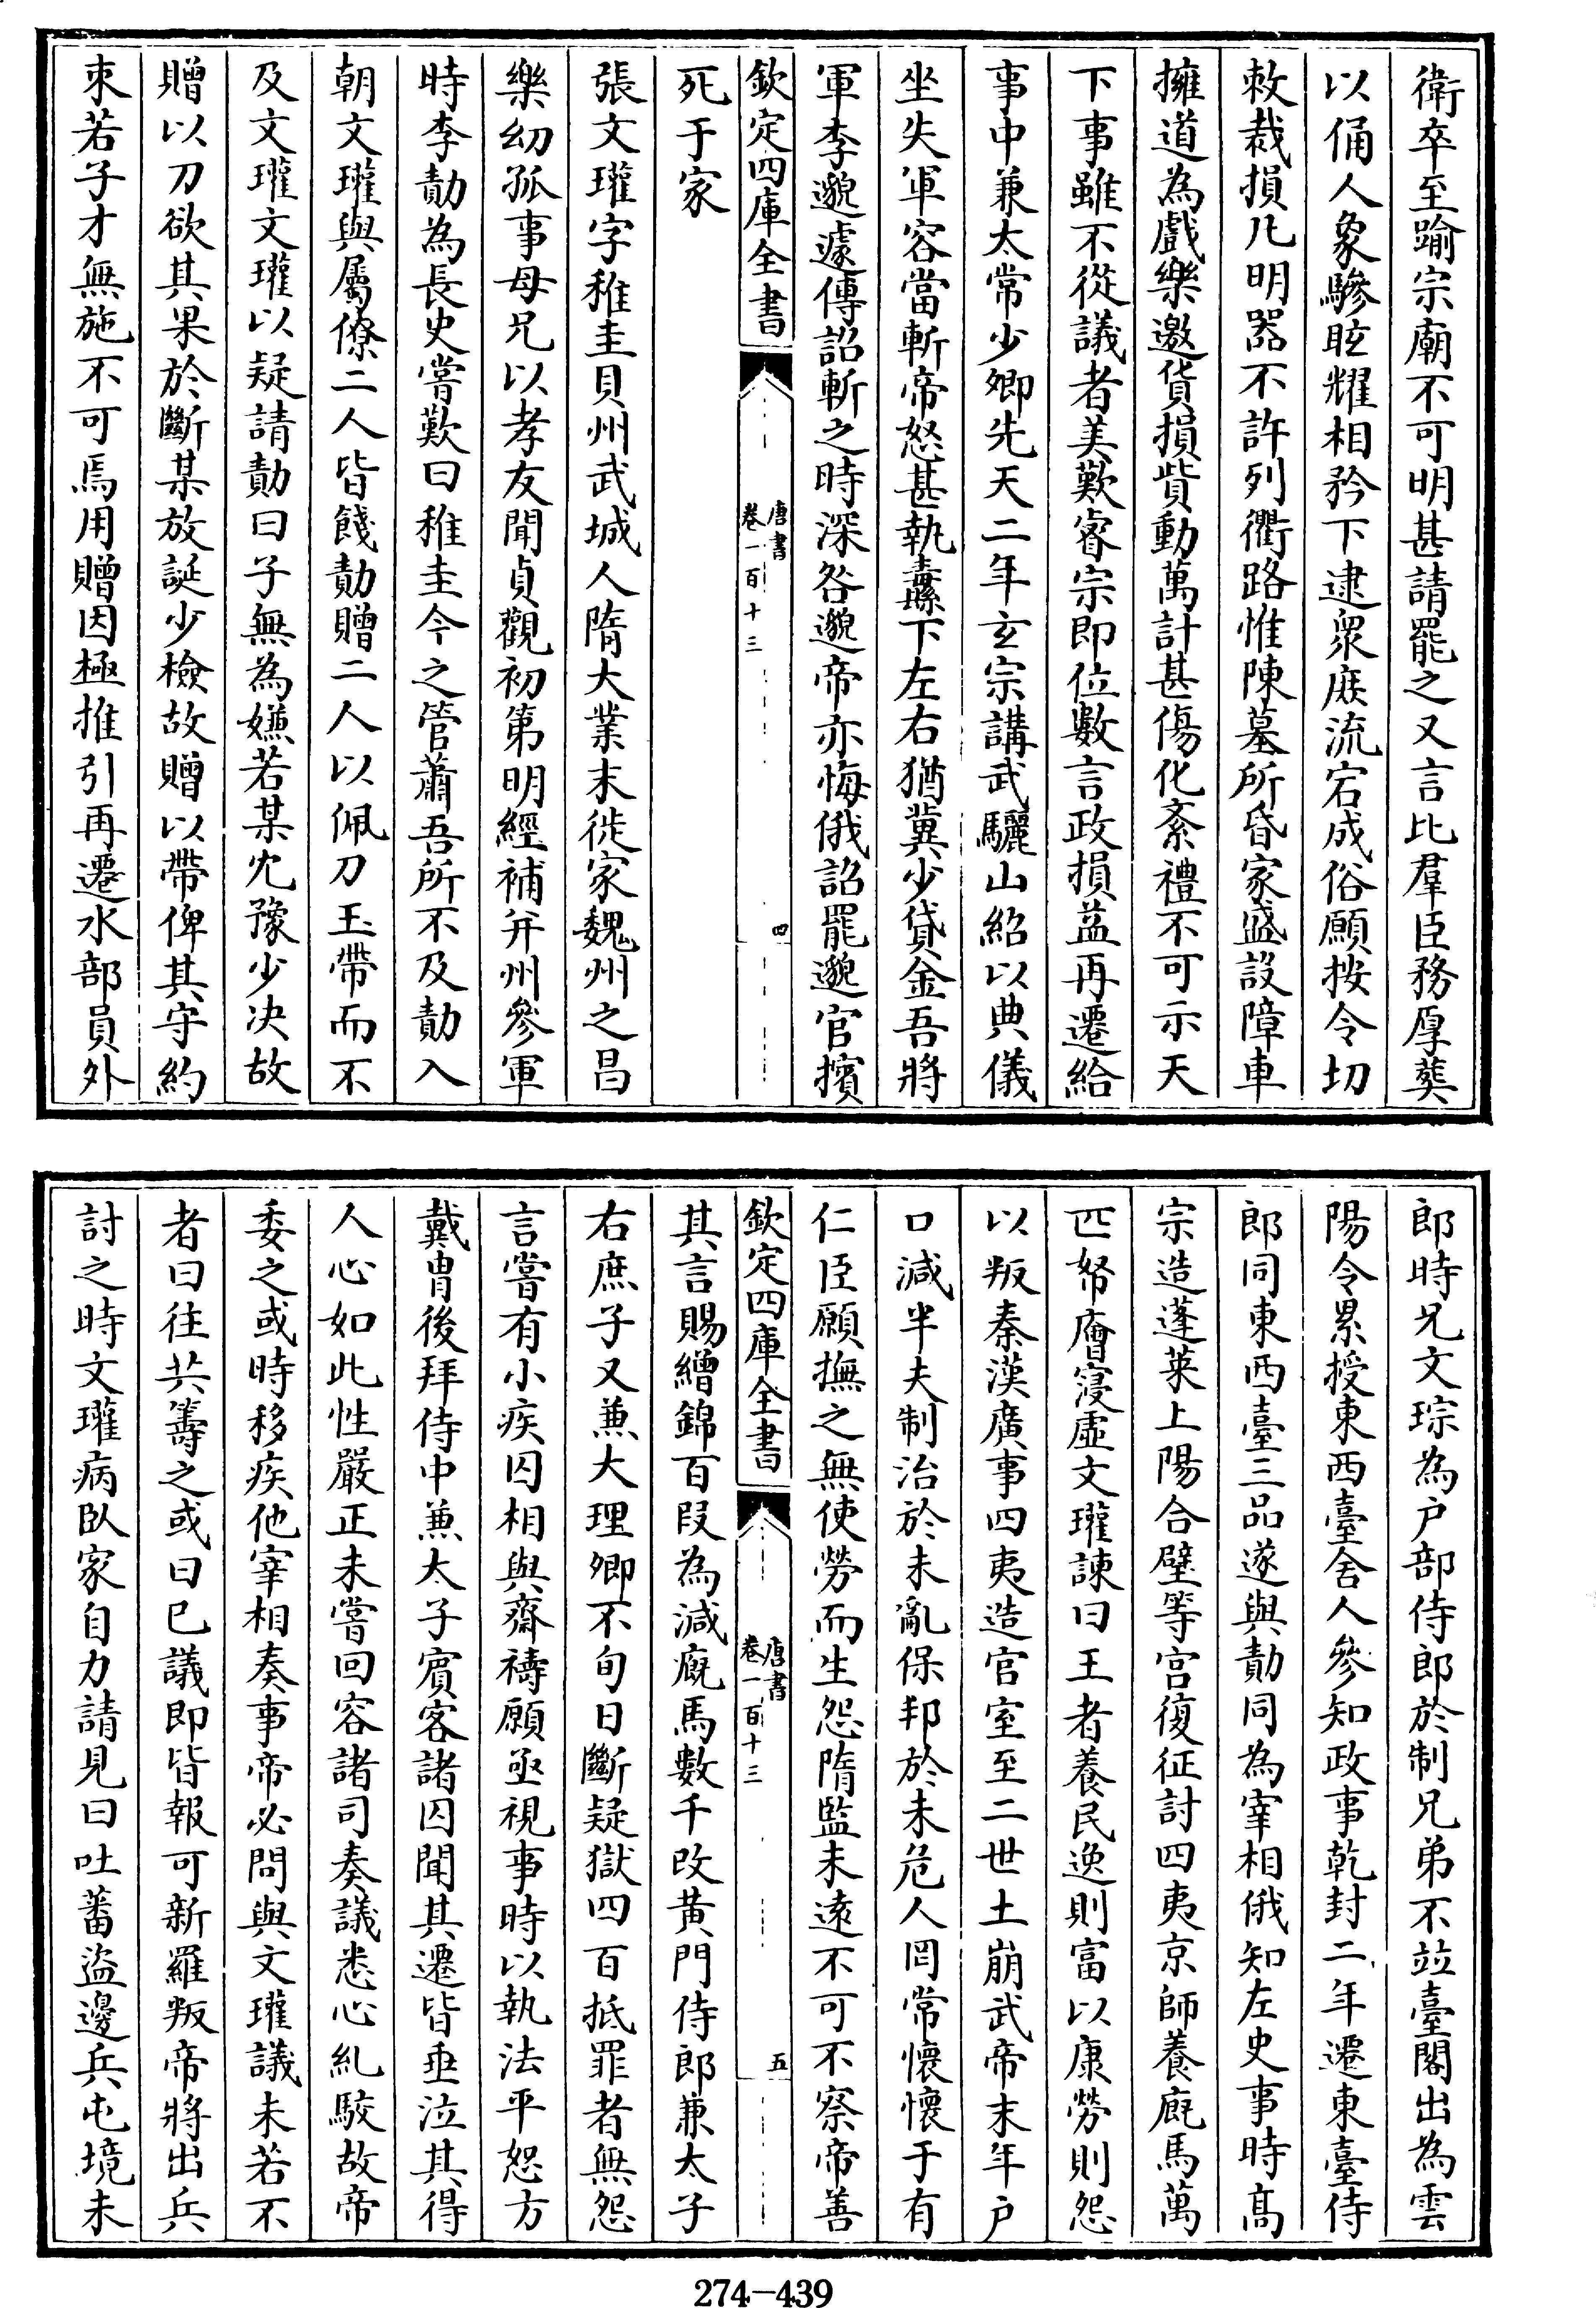 衛卒至踰宗廟不可明甚請罷之又言比羣臣務厚葬
以俑人象驂眩耀相矜下逮衆庶流宕成俗願按令切
敕裁損凡明器不許列衢路惟陳墓所昏家盛設障車
擁道為戲樂邀貨損貲動萬計甚傷化紊禮不可示天
下事雖不從議者美歎睿宗即位數言政損益再遷給
事中兼太常少卿先天二年玄宗講武驪山紹以典儀
坐失軍容當斬帝怒甚執纛下左右猶冀少貸金吾將
軍李邈遽傳詔斬之時深咎邈帝亦悔俄詔罷邈官擯
欽定四庫全書
唐書
卷一百十三
四
死于家
張文瓘字稚圭貝州武城人隋大業末徙家魏州之昌
樂幼孤事母兄以孝友聞貞觀初第明經補并州參軍
時李勣為長史嘗歎曰稚圭今之管蕭吾所不及勣入
朝文瓘與屬僚二人皆餞勣贈二人以佩刀玉帶而不
及文瓘文瓘以疑請勣曰子無為嫌若某冘豫少决故
贈以刀欲其果於斷某放誕少檢故贈以帶俾其守約
束若子才無施不可焉用贈因極推引再遷水部員外
郎時兄文琮為戶部侍郎於制兄弟不竝臺閣出為雲
陽令累授東西臺舍人參知政事乾封二年遷東臺侍
郎同東西臺三品遂與勣同為宰相俄知左史事時髙
宗造蓬萊上陽合璧等宮復征討四夷京師養廐馬萬
匹帑廥寖虛文瓘諫曰王者養民逸則富以康勞則怨
以叛秦漢廣事四夷造宫室至二世土崩武帝末年戶
口減半夫制治於未亂保邦於未危人罔常懷懷于有
仁臣願撫之無使勞而生怨隋監未遠不可不察帝善
欽定四庫全書
唐書
卷一百十三
五
其言賜繒錦百段為減廐馬數千改黄門侍郎兼太子
右庶子又兼大理卿不旬日斷疑獄四百抵罪者無怨
言嘗有小疾囚相與齋禱願亟視事時以執法平恕方
戴胄後拜侍中兼太子賓客諸囚聞其遷皆垂泣其得
人心如此性嚴正未嘗回容諸司奏議悉心糺駮故帝
委之或時移疾他宰相奏事帝必問與文瓘議未若不
者曰往共籌之或曰已議即皆報可新羅叛帝將出兵
討之時文瓘病臥家自力請見曰吐蕃盜邊兵屯境未
274-439